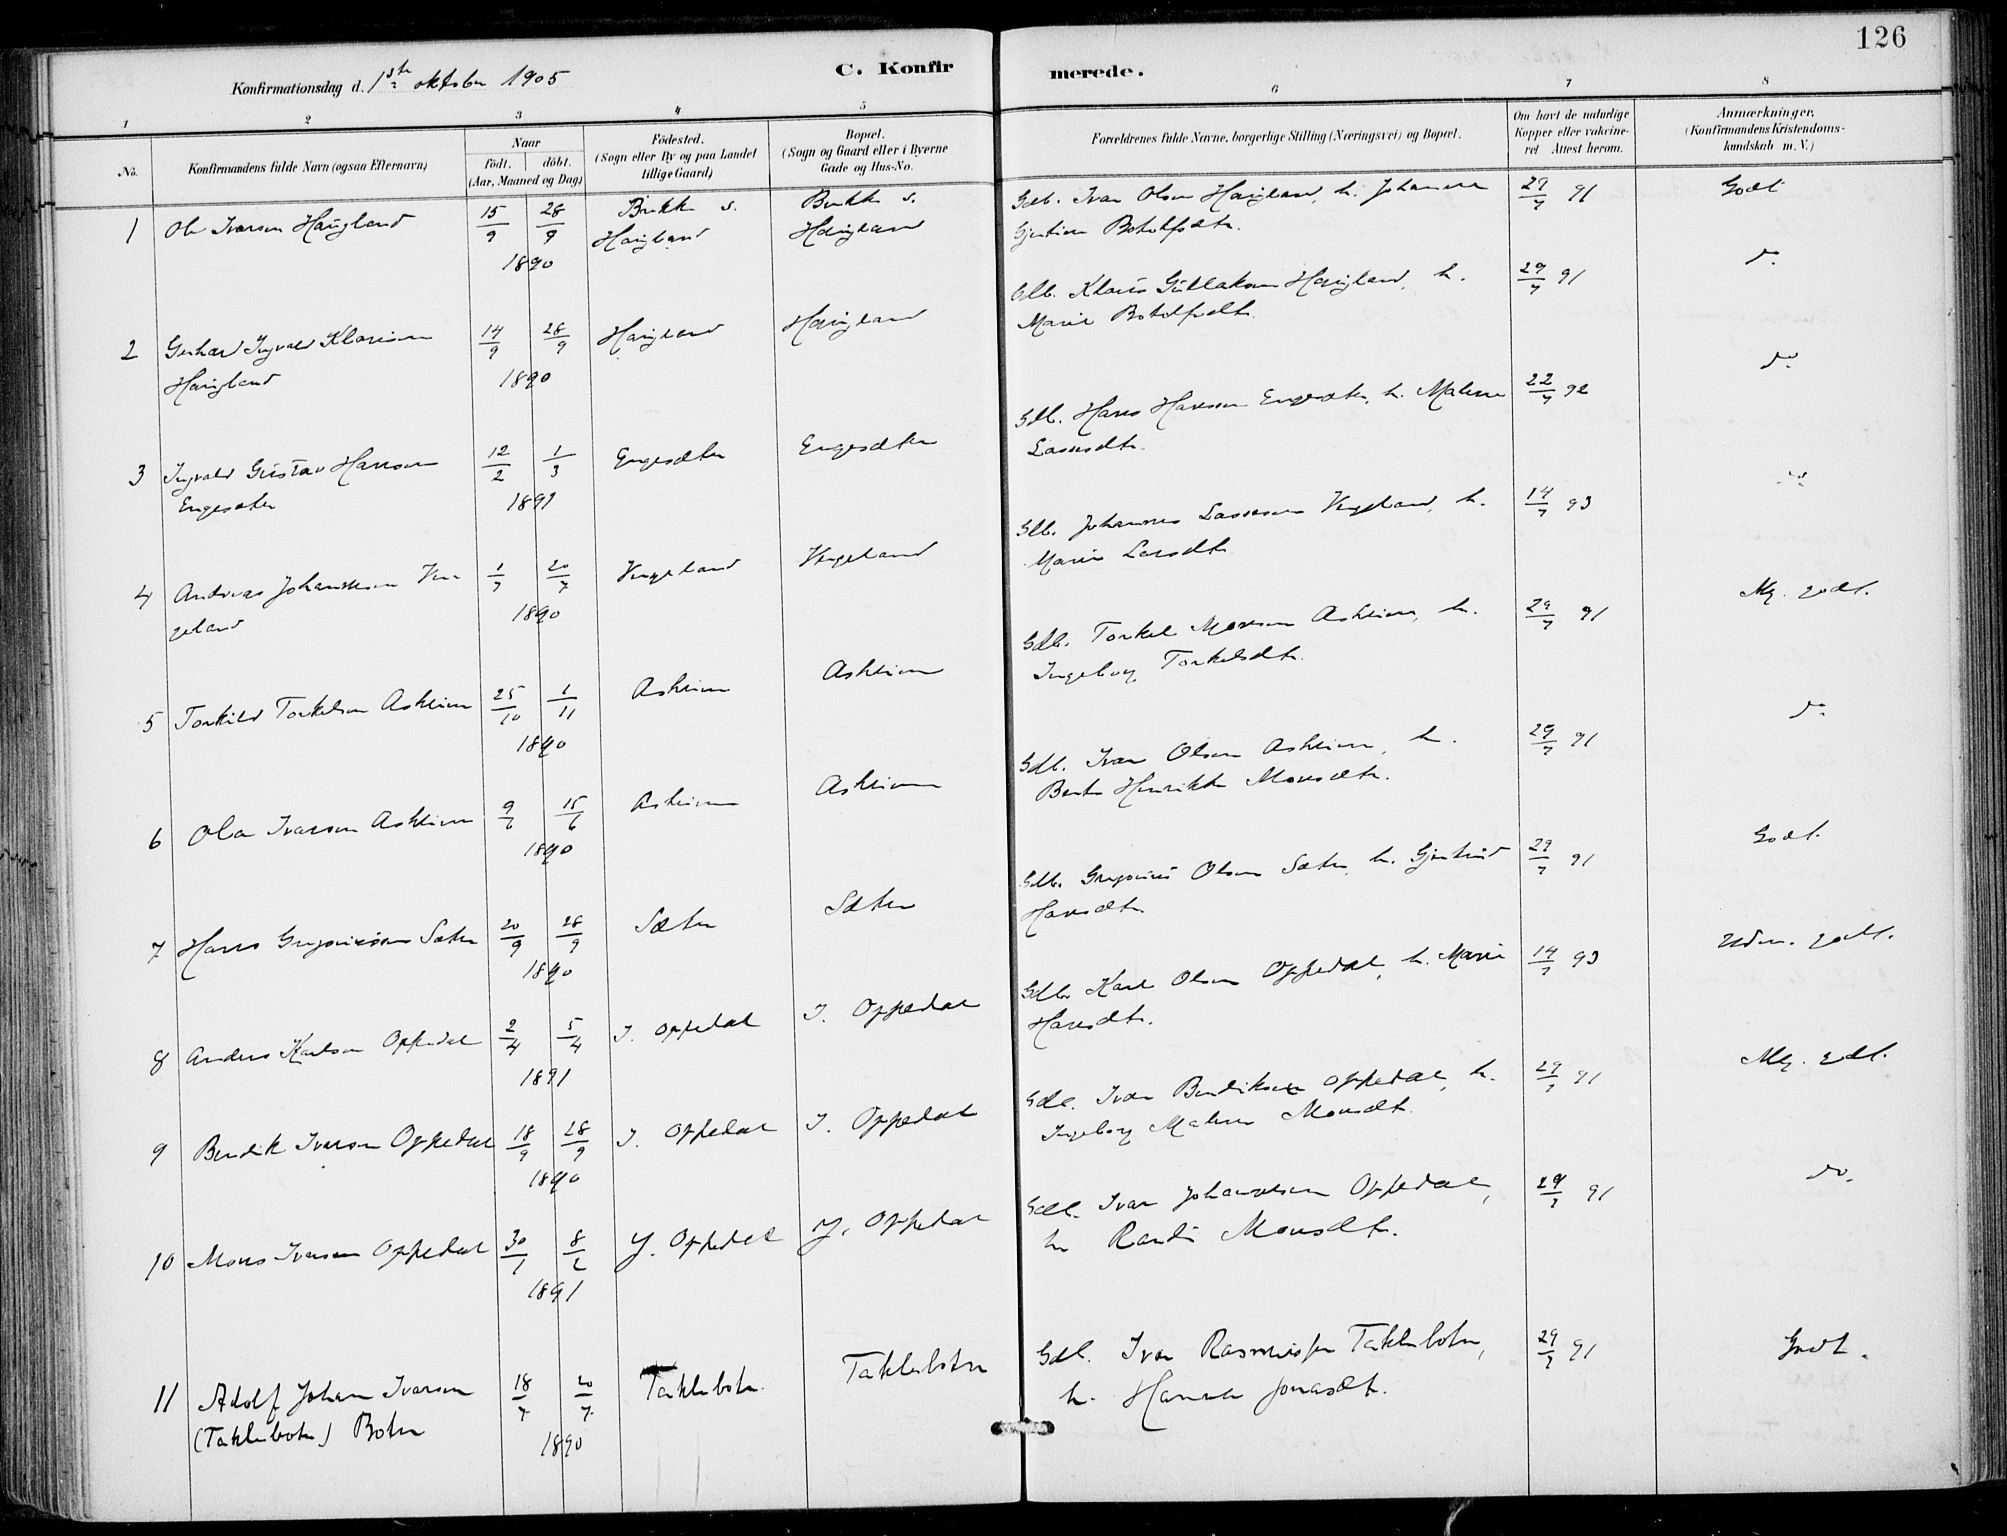 126
Konfirmationsdag d. 1ste oktober 1905
C. Konfirmerede.
1 2 3 4 5 6 7 8
No.
Konfirmandens fulde Navn (ogsaa Efternavn)
Naar
födt. döbt.
(Aar, Maaned og Dag)
Födested.
(Sogn eller By og paa Landet
tillige Gaard)
Bopæl.
(Sogn og Gaard eller i Byerne
Gade og Hus-No.
Forældrenes fulde Navne, borgerlige Stilling (Næringsvei) og Bopæl.
Om havt de naturlige
Kopper eller vakcine-
ret Attest herom.
Anmærkninger.
(Konfirmandens Kristendoms-
kundskab m. V.)
1 Ole Ivarson Haugland 15/9 28/9 1890 Brekke s. Haugland Brekke s. Haugland Gdb. Ivar Olson Haugland, h. Johanna
Botolfsdtr. 29/7 91 Godt
2 Gerhard Ingvald Klauson
Haugland 14/9 28/9 1890 Haugland Haugland Gdb. Klaus Gullakson Haugland, h.
Marie Botolfsdtr. 29/7 91 do
3 Ingvald Gustav Hanson
Engesæter 12/2 1/3 1891 Engesæter Engesæter Gdb. Hans Hanson Engesæter, h. Malene
Lassesdtr. 22/7 92 do
4 Andreas Johannesson Ven
geland 1/7 20/7 1890 Vengeland Vengeland Gdb. Johannes Lasseson Vengeland, h.
Marie Larsdtr. 14/7 93 do
5 Torkild Torkelson Asheim 25/10 1/11 1890 Asheim Asheim Gdb. Torkel Monson Asheim, h.
Ingeborg Torkelsdtr. 29/7 91 Mg. godt.
6 Ola Ivarson Asheim 9/6 15/6 1890 Asheim Asheim Gdb. Ivar Olson Asheim, h.
Henrikke Monsdtr. 29/7 91 do
7 Hans Gregoriuson Sæter 20/9 28/9 1890 Sæter Sæter Gdb. Gregorius Olson Sæter, h. Gjertrud
Hansdtr. 29/7 91 Godt.
8 Anders Karlson Oppedal 2/4 5/4 1891 I. Oppedal I. Oppedal Gdb. Karl Olson Oppedal, h. Marie
Hansdtr. 14/7 93 Udm. godt.
9 Bendik Ivarson Oppedal 18/9 28/9 1890 I. Oppedal I. Oppedal Gdb. Ivar Bendikson Oppedal, h.
Ingeborg Malene Monsdtr. 29/7 91 Mg. godt.
10 Mons Ivarson Oppedal 30/1 8/2 1891 Y. Oppedal Y. Oppedal Gdb. Ivar Johanneson Oppedal,
h. Randi Monsdtr. 29/7 91 do.
11 Adolf Johan Ivarson
(Taklebotn) Botn 18/7 20/7 1890 Taklebotn Taklebotn Gdb. Ivar Rasmuson Taklebotn,
h. Hanna Jonasdtr. 29/7 91 Godt.